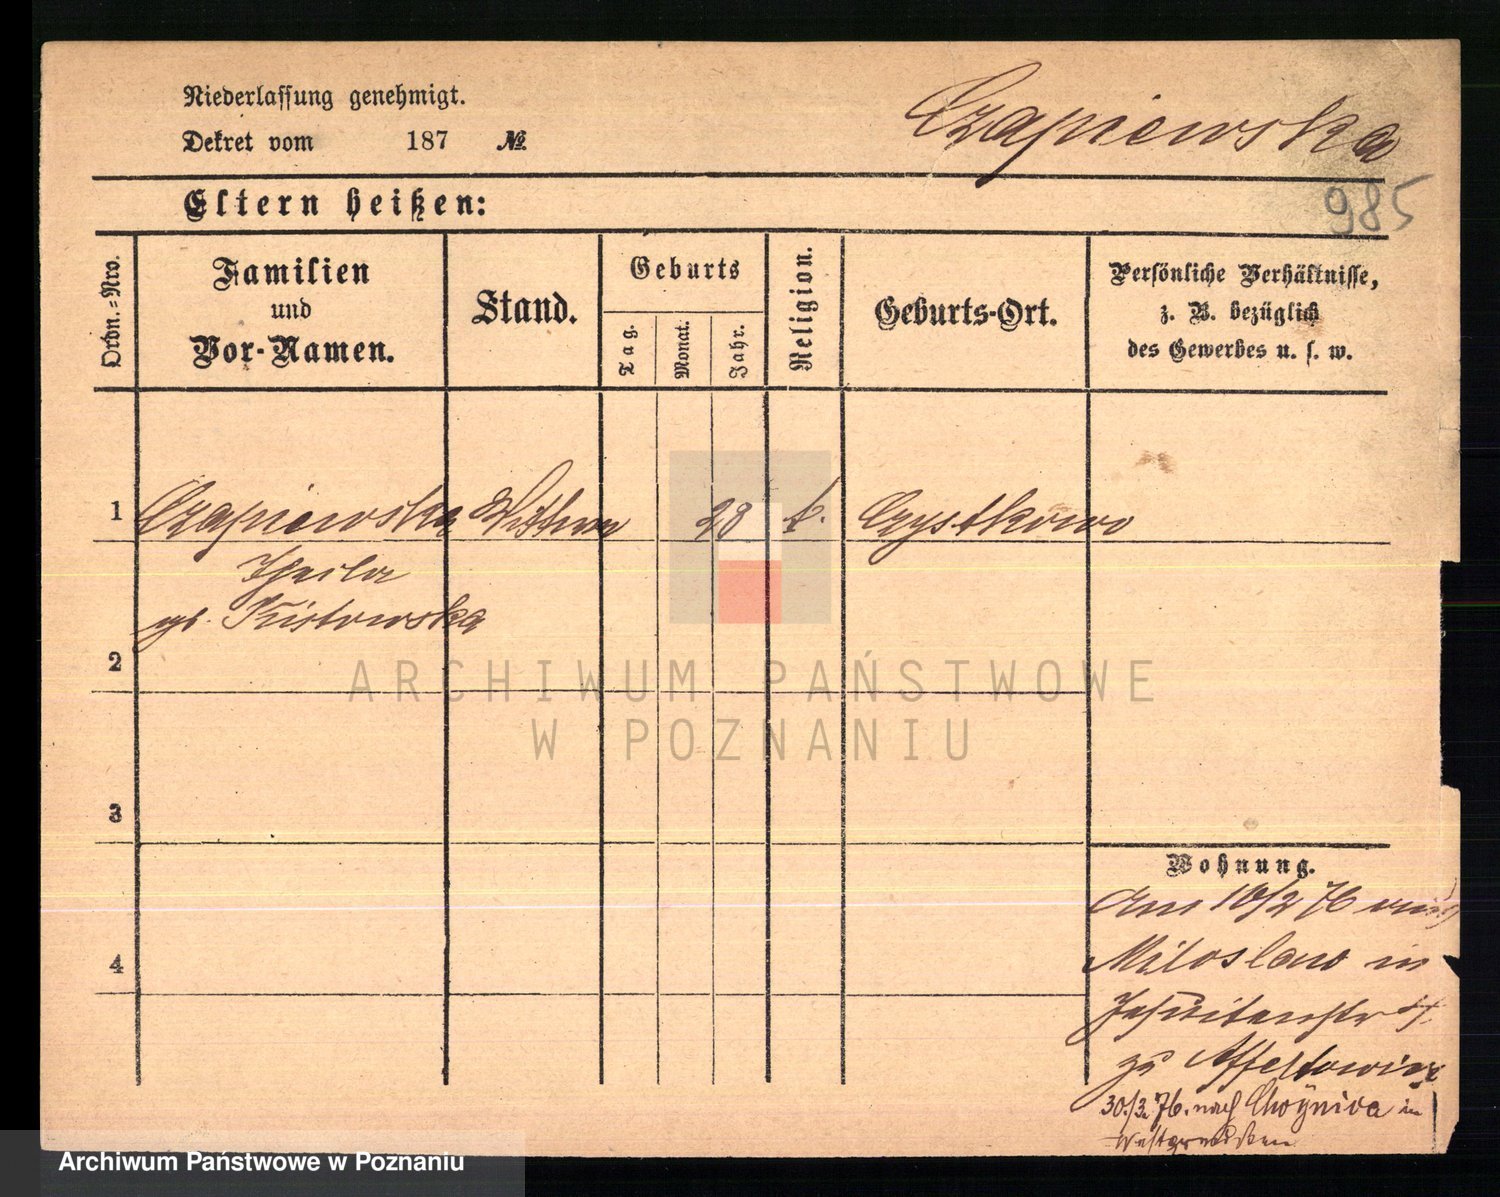 Niederlassung genehmigt.
Dekret vom 187 №
Czapiewska
985
Eltern heißen:
Ordn.=Nro.
Familien
und
Vor-Namen.
Stand.
Geburts
Tag.
Monat.
Jahr.
Religion.
Geburts-Ort.
Persönliche Verhältnisse,
z. B. bezüglich
des Gewerbes u. s. w.
1 Czapiewska Wittwe 28 k. Czystkowo
Thecla
gb.
2
3
4
Wohnung.
Am 10/2 76 aus
Miloslaw in
Jesuitenstr
zu
30./3. 76. nach Choynica in
Westpreußen
ARCHIWUM PAŃSTWOWE
W POZNANIU
Archiwum Państwowe w Poznaniu